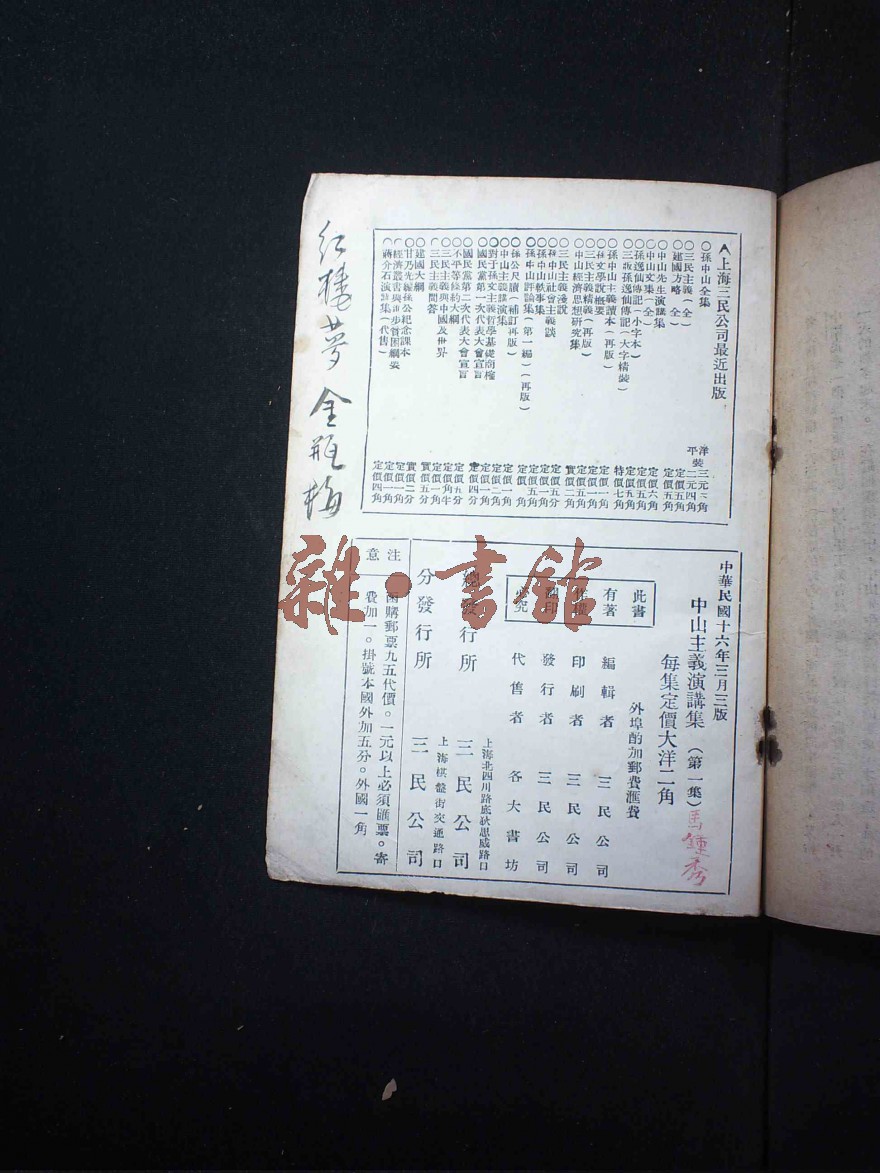 上海三民公司最近出版
○孫中山全集 洋裝三元二角
平裝二元四角
○三民主義(全) 定價五角
○建國方略(全) 定價五角
○中山先生演講集 定價六角
○中山文集(全)
○孫逸仙傳記(小字本)
孫逸仙傳記(大字精裝) 特價七角
○孫中山主義讀本(再版)
○孫文學說概要
○三民主義精義(再版)
○中山經濟思想研究集 實價二角
○三民主義淺說
○孫中山社會主義談
○孫中山軼事集
○孫中山評論集(第一編)(再版)
○孫公尺牘(補訂再版)
○中山主義講演集
○對于孫文主義哲學基礎商榷
○國民黨第一次代表大會宣言
○國民黨第二次代表大會宣言
○不平等條約大綱
○三民主義與中國及世界
○三民主義問答
○建國大綱
○甘乃光編孫公紀念課本
○經濟叢書與進步貧困綱要
○蔣介石演講集(代售) 定價四角
中華民國十六年三月三版
中山主義演講集(第一集)
馬鍾秀
每集定價大洋二角
外埠酌加郵費滙費
此書
有著
作權
翻印
必究
編輯者 三民公司
印刷者 三民公司
發行者 三民公司
代售者 各大書坊
總發行所 上海北四川路底狄思威路口 三民公司
分發行所 上海棋盤街交通路口 三民公司
注意
函購郵票九五代價。一元以上必須匯票。寄
費加一。掛號本國外加五分。外國一角
红楼夢 金瓶梅
雜·書館